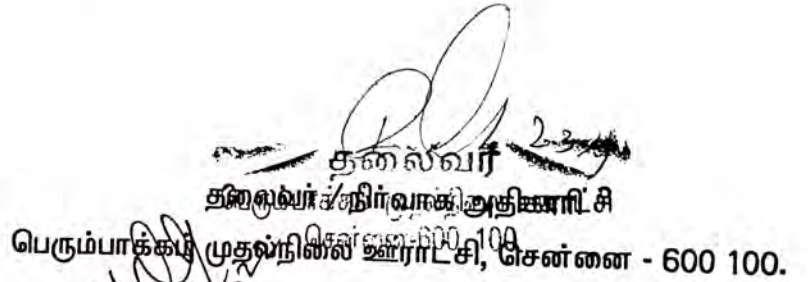 தலைவர்
தலைவர் / நிர்வாக அதிகாரி
சென்னை-600 100
பெரும்பாக்கம் முதல்நிலை ஊராட்சி, சென்னை - 600 100.